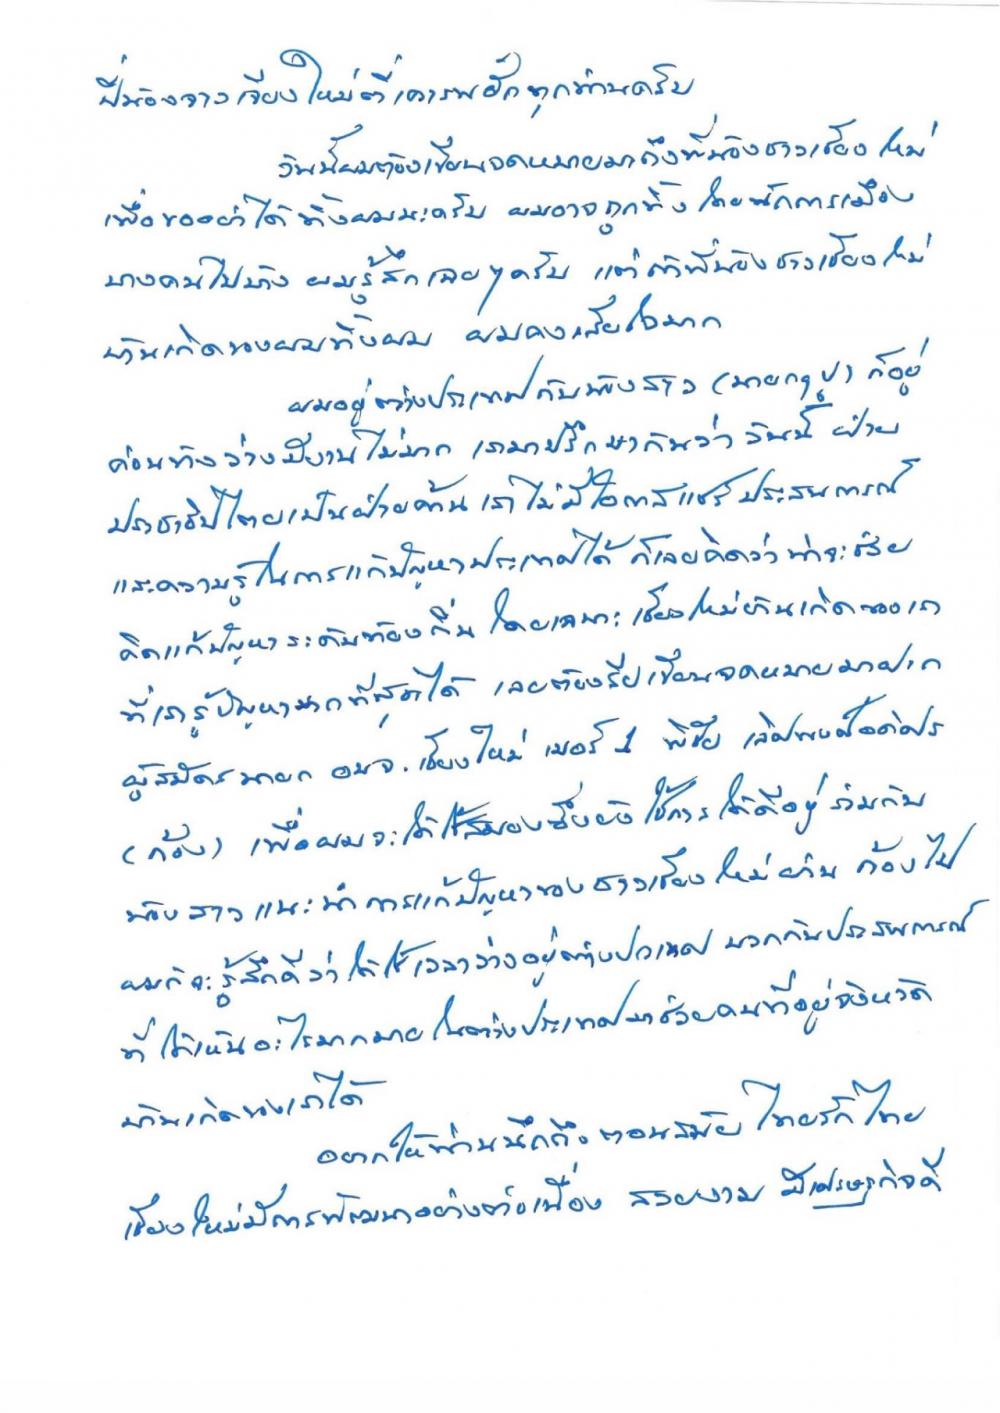 ปี้น้องจาวเจียงใหม่ตี้เคารพฮักทุกท่านครับ
วันนี้ผมต้องเขียนจดหมายมาถึงพี่น้องชาวเชียงใหม่
เพื่อขออย่าได้ทิ้งผมนะครับ ผมอาจถูกทิ้งโดยนักการเมือง
บางคนไปบ้าง ผมรู้สึกเฉยๆครับ แต่ถ้าพี่น้องชาวเชียงใหม่
บ้านเกิดของผมทิ้งผม ผมคงเสียใจมาก
ผมอยู่ต่างประเทศกับน้องสาว (นายกฯปู) ก็อยู่
ค่อนข้างว่างมีงานไม่มาก เรามาปรึกษากันว่า วันนี้ ฝ่าย
ประชาธิปไตยเป็นฝ่ายค้าน เราไม่มีโอกาสแชร์ประสบการณ์
และความรู้ในการแก้ปัญหาประเทศได้ ก็เลยคิดว่าน่าจะช่วย
คิดแก้ปัญหาระดับท้องถิ่น โดยเฉพาะเชียงใหม่บ้านเกิดของเรา
ที่เรารู้ปัญหามากที่สุดได้ เลยต้องรีบเขียนจดหมายมาฝาก
ผู้สมัครนายก อบจ. เชียงใหม่ เบอร์ 1 พิชัย เลิศพงศ์อดิศร
(ก้อง) เพื่อผมจะได้ใช้สมองซึ่งยังใช้การได้ดีอยู่ ร่วมกับ
น้องสาว แนะนำการแก้ปัญหาของชาวเชียงใหม่ผ่านก้องไป
ผมก็จะรู้สึกดีว่าได้ใช้เวลาว่างอยู่ต่างประเทศ บวกกับประสบการณ์
ที่ได้เห็นอะไรมากมายในต่างประเทศมาช่วยคนที่อยู่จังหวัด
บ้านเกิดของเราได้
อยากให้ท่านนึกถึงตอนสมัยไทยรักไทย
เชียงใหม่มีการพัฒนาอย่างต่อเนื่อง สวยงาม มีเศรษฐกิจดี